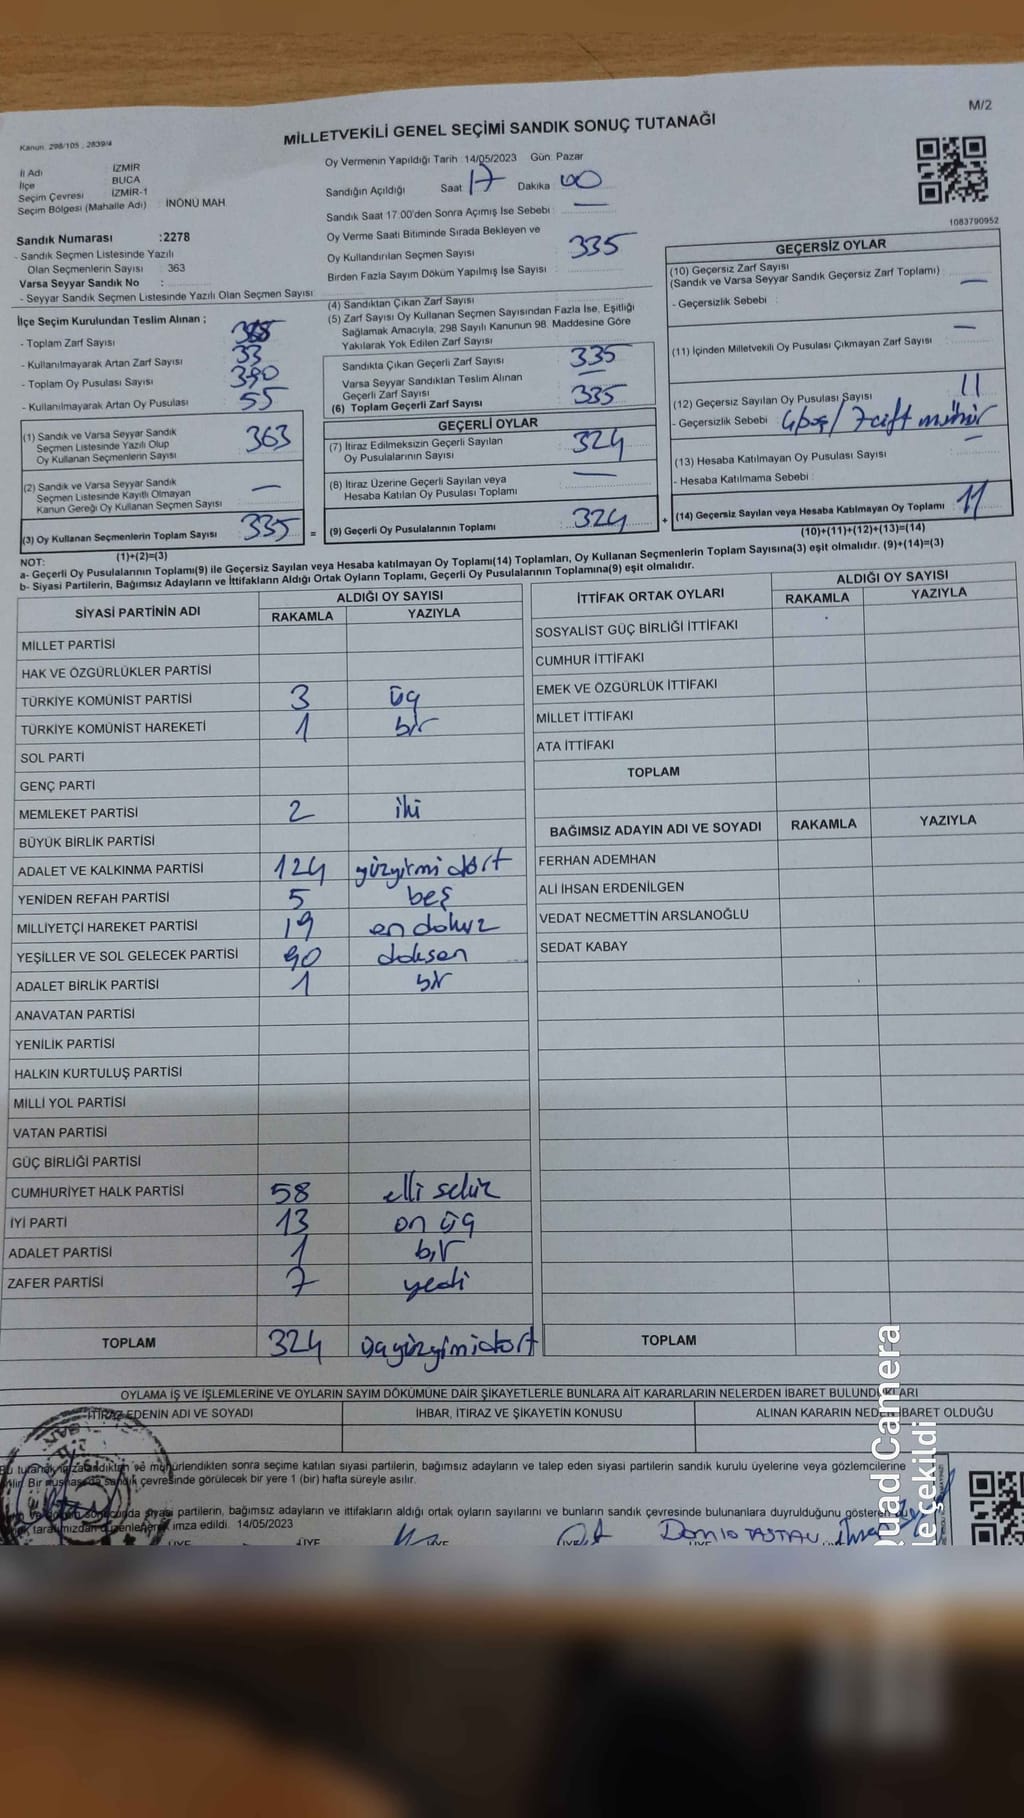 M/2
Kanun. 298/105 , 2839/4
MİLLETVEKİLİ GENEL SEÇİMİ SANDIK SONUÇ TUTANAĞI
İl Adı : İZMİR
İlçe : BUCA
Seçim Çevresi : İZMİR-1
Seçim Bölgesi (Mahalle Adı) : İNÖNÜ MAH
Sandık Numarası :2278
- Sandık Seçmen Listesinde Yazılı
Olan Seçmenlerin Sayısı : 363
Varsa Seyyar Sandık No :
- Seyyar Sandık Seçmen Listesinde Yazılı Olan Seçmen Sayısı :
Oy Vermenin Yapıldığı Tarih 14/05/2023 Gün: Pazar
Sandığın Açıldığı Saat 17 Dakika 00
Sandık Saat 17.00'den Sonra Açımış İse Sebebi : —
Oy Verme Saati Bitiminde Sırada Bekleyen ve
Oy Kullandırılan Seçmen Sayısı : 335
Birden Fazla Sayım Döküm Yapılmış İse Sayısı :
1083790952
İlçe Seçim Kurulundan Teslim Alınan ;
- Toplam Zarf Sayısı :
- Kullanılmayarak Artan Zarf Sayısı : 33
- Toplam Oy Pusulası Sayısı : 390
- Kullanılmayarak Artan Oy Pusulası : 55
(1) Sandık ve Varsa Seyyar Sandık
Seçmen Listesinde Yazılı Olup
Oy Kullanan Seçmenlerin Sayısı : 363
(2) Sandık ve Varsa Seyyar Sandık
Seçmen Listesinde Kayıtlı Olmayan
Kanun Gereği Oy Kullanan Seçmen Sayısı : —
(3) Oy Kullanan Seçmenlerin Toplam Sayısı : 335
(1)+(2)=(3)
(4) Sandıktan Çıkan Zarf Sayısı
(5) Zarf Sayısı Oy Kullanan Seçmen Sayısından Fazla İse, Eşitliği
Sağlamak Amacıyla, 298 Sayılı Kanunun 98. Maddesine Göre
Yakılarak Yok Edilen Zarf Sayısı :
Sandıkta Çıkan Geçerli Zarf Sayısı : 335
Varsa Seyyar Sandıktan Teslim Alınan
Geçerli Zarf Sayısı : —
(6) Toplam Geçerli Zarf Sayısı : 335
GEÇERLİ OYLAR
(7) İtiraz Edilmeksizin Geçerli Sayılan
Oy Pusulalarının Sayısı : 324
(8) İtiraz Üzerine Geçerli Sayılan veya
Hesaba Katılan Oy Pusulası Toplamı : —
= (9) Geçerli Oy Pusulalarının Toplamı : 324
GEÇERSİZ OYLAR
(10) Geçersiz Zarf Sayısı
(Sandık ve Varsa Seyyar Sandık Geçersiz Zarf Toplamı) : —
- Geçersizlik Sebebi :
(11) İçinden Milletvekili Oy Pusulası Çıkmayan Zarf Sayısı : —
(12) Geçersiz Sayılan Oy Pusulası Sayısı : 11
- Geçersizlik Sebebi : 4 boş / 7 çift mühür
(13) Hesaba Katılmayan Oy Pusulası Sayısı : —
- Hesaba Katılmama Sebebi :
+ (14) Geçersiz Sayılan veya Hesaba Katılmayan Oy Toplamı : 11
(10)+(11)+(12)+(13)=(14)
NOT:
a- Geçerli Oy Pusulalarının Toplamı(9) ile Geçersiz Sayılan veya Hesaba katılmayan Oy Toplamı(14) Toplamları, Oy Kullanan Seçmenlerin Toplam Sayısına(3) eşit olmalıdır. (9)+(14)=(3)
b- Siyasi Partilerin, Bağımsız Adayların ve İttifakların Aldığı Ortak Oyların Toplamı, Geçerli Oy Pusulalarının Toplamına(9) eşit olmalıdır.
SİYASİ PARTİNİN ADI ALDIĞI OY SAYISI
RAKAMLA YAZIYLA
MİLLET PARTİSİ
HAK VE ÖZGÜRLÜKLER PARTİSİ
TÜRKİYE KOMÜNİST PARTİSİ 3 üç
TÜRKİYE KOMÜNİST HAREKETİ 1 bir
SOL PARTİ
GENÇ PARTİ
MEMLEKET PARTİSİ 2 iki
BÜYÜK BİRLİK PARTİSİ
ADALET VE KALKINMA PARTİSİ 124 yüzyirmi dört
YENİDEN REFAH PARTİSİ 5 beş
MİLLİYETÇİ HAREKET PARTİSİ 19 on dokuz
YEŞİLLER VE SOL GELECEK PARTİSİ 90 doksan
ADALET BİRLİK PARTİSİ 1 bir
ANAVATAN PARTİSİ
YENİLİK PARTİSİ
HALKIN KURTULUŞ PARTİSİ
MİLLİ YOL PARTİSİ
VATAN PARTİSİ
GÜÇ BİRLİĞİ PARTİSİ
CUMHURİYET HALK PARTİSİ 58 elli sekiz
İYİ PARTİ 13 on üç
ADALET PARTİSİ 1 bir
ZAFER PARTİSİ 7 yedi
TOPLAM 324 üçyüzyimidört
İTTİFAK ORTAK OYLARI ALDIĞI OY SAYISI
RAKAMLA YAZIYLA
SOSYALİST GÜÇ BİRLİĞİ İTTİFAKI
CUMHUR İTTİFAKI
EMEK VE ÖZGÜRLÜK İTTİFAKI
MİLLET İTTİFAKI
ATA İTTİFAKI
TOPLAM
BAĞIMSIZ ADAYIN ADI VE SOYADI RAKAMLA YAZIYLA
FERHAN ADEMHAN
ALİ İHSAN ERDENİLGEN
VEDAT NECMETTİN ARSLANOĞLU
SEDAT KABAY
TOPLAM
OYLAMA İŞ VE İŞLEMLERİNE VE OYLARIN SAYIM DÖKÜMÜNE DAİR ŞİKAYETLERLE BUNLARA AİT KARARLARIN NELERDEN İBARET BULUNDUKLARI
İTİRAZ EDENİN ADI VE SOYADI İHBAR, İTİRAZ VE ŞİKAYETİN KONUSU ALINAN KARARIN NEDEN İBARET OLDUĞU
Bu tutanak imzalandıktan ve mühürlendikten sonra seçime katılan siyasi partilerin, bağımsız adayların ve talep eden siyasi partilerin sandık kurulu üyelerine veya gözlemcilerine
Bir nüshası da sandık çevresinde görülecek bir yere 1 (bir) hafta süreyle asılır.
sonucunda siyasi partilerin, bağımsız adayların ve ittifakların aldığı ortak oyların sayılarını ve bunların sandık çevresinde bulunanlara duyrulduğunu gösteren
tarafımızdan düzenlenerek imza edildi. 14/05/2023
ÜYE ÜYE ÜYE ÜYE
Quad Camera
le çekildi